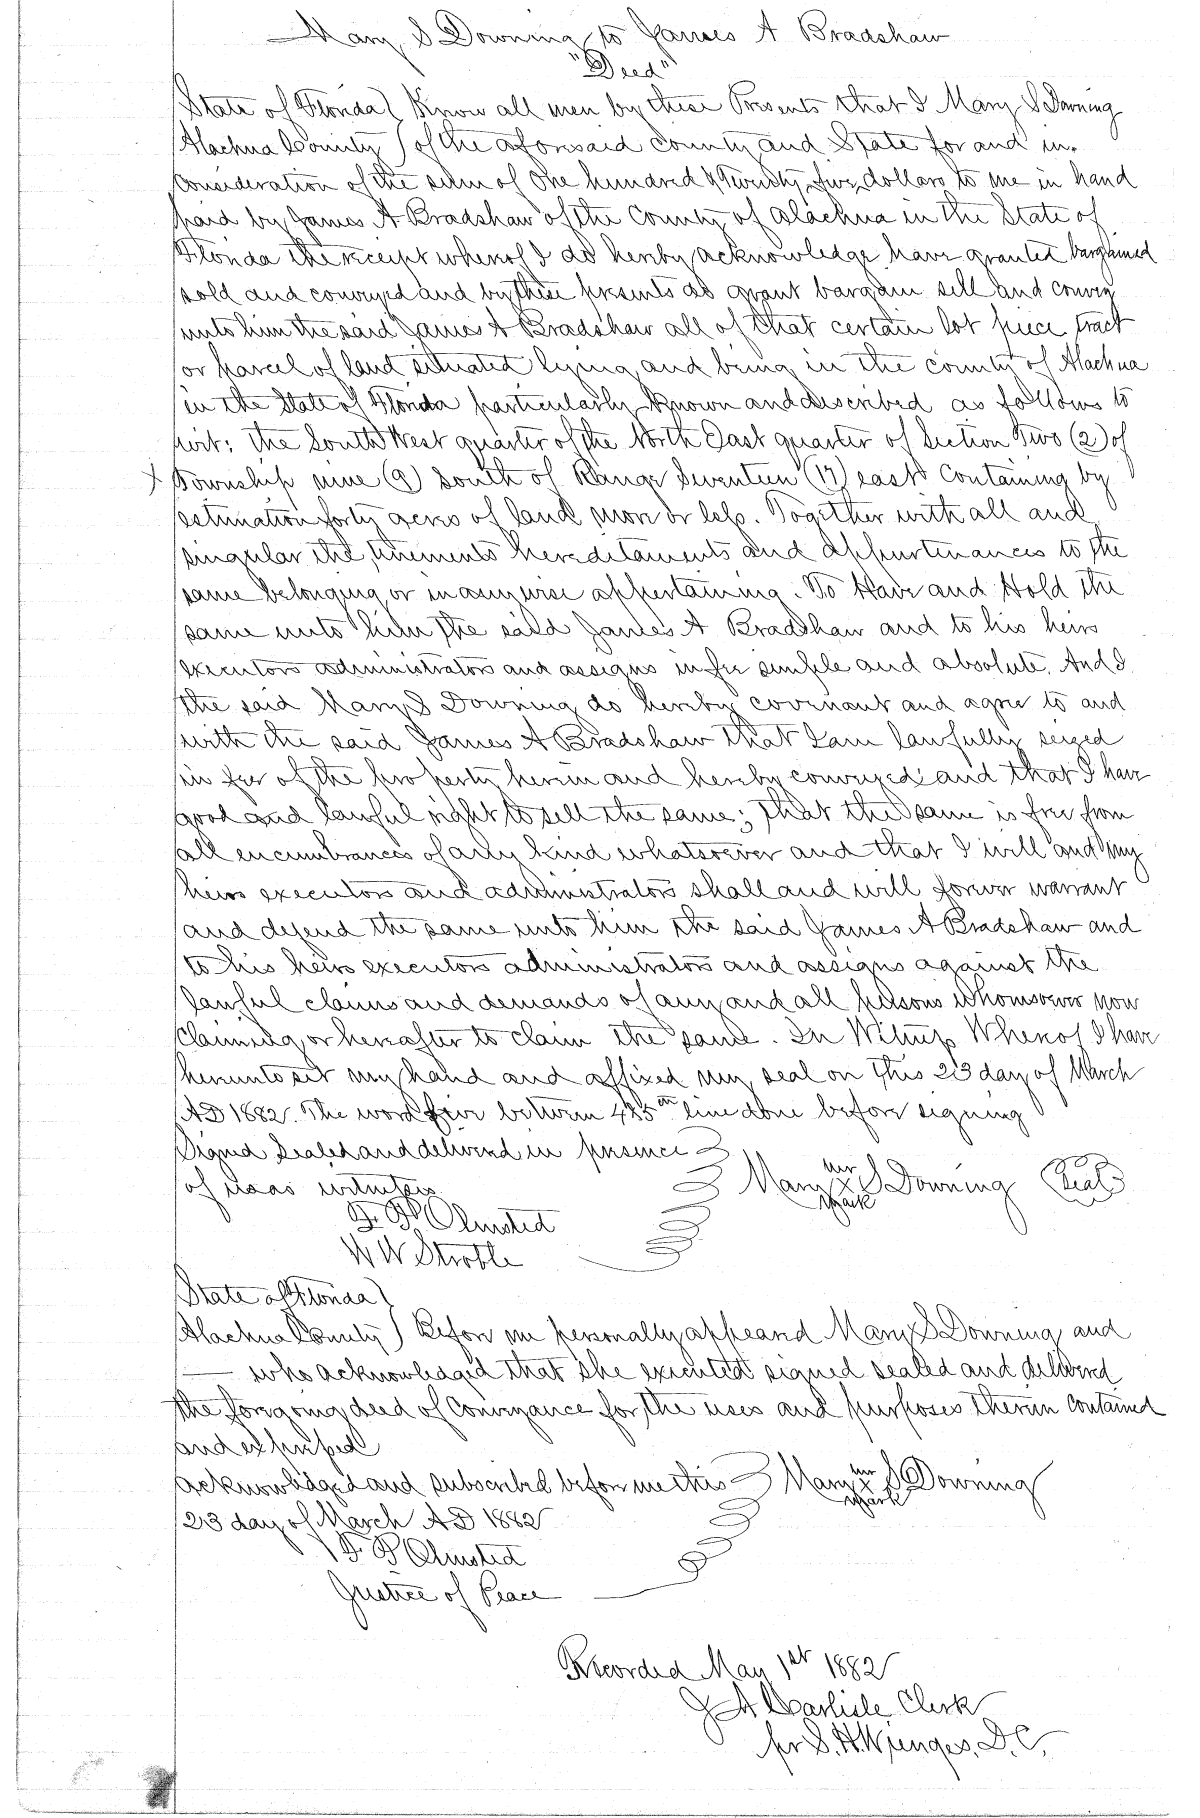 Mary S Downing to James A Bradshaw
"Deed"
State of Florida ) Know all men by these Presents that I Mary S Downing
Alachua County ) of the aforesaid county and State for and in
Consideration of the sum of One hundred & Twenty five dollars to me in hand
paid by James A Bradshaw of the County of Alachua in the State of
Florida the receipt whereof I do hereby acknowledge have granted bargained
sold and conveyed and by these presents do grant bargain sell and convey
unto him the said James A Bradshaw all of that certain lot piece tract
or parcel of land situated lying and being in the county of Alachua
in the State of Florida particularly known and described as follows to
wit: the South West quarter of the North East quarter of Section Two (2) of
X Township nine (9) South of Range Seventeen (17) east Containing by
estimation forty acres of land more or less. Together with all and
singular the tenements hereditaments and appurtenances to the
same belonging or in anywise appertaining. To Have and Hold the
same unto him the said James A Bradshaw and to his heirs
executors administrators and assigns in fee simple and absolute. And I
the said Mary S Downing do hereby covenant and agree to and
with the said James A Bradshaw that I am lawfully seized
in fee of the property herein and hereby conveyed and that I have
good and lawful right to sell the same; that the same is free from
all encumbrances of any kind whatsoever and that I will and my
heirs executors and administrators shall and will forever warrant
and defend the same unto him the said James A Bradshaw and
to his heirs executors administrators and assigns against the
lawful claims and demands of any and all persons whomsoever now
Claiming or hereafter to claim the same. In Witness Whereof I have
hereunto set my hand and affixed my seal on this 23 day of March
AD 1882. The word five between line done before signing
Signed Sealed and delivered in presence
of us as witnesses Mary her X mark S Downing (Seal)
F. P. Olmsted
W W Stroble
State of Florida )
Alachua County ) Before me personally appeared Mary S Downing and
— who acknowledged that she executed signed sealed and delivered
the foregoing deed of Conveyance for the uses and purposes therein contained
and expressed
Acknowledged and subscribed before me this Mary her X mark S Downing
23 day of March AD 1882
F. P Olmsted
Justice of Peace
Recorded May 1st 1882
J A Carlisle Clerk
pr S. H. Wienges, D.C.